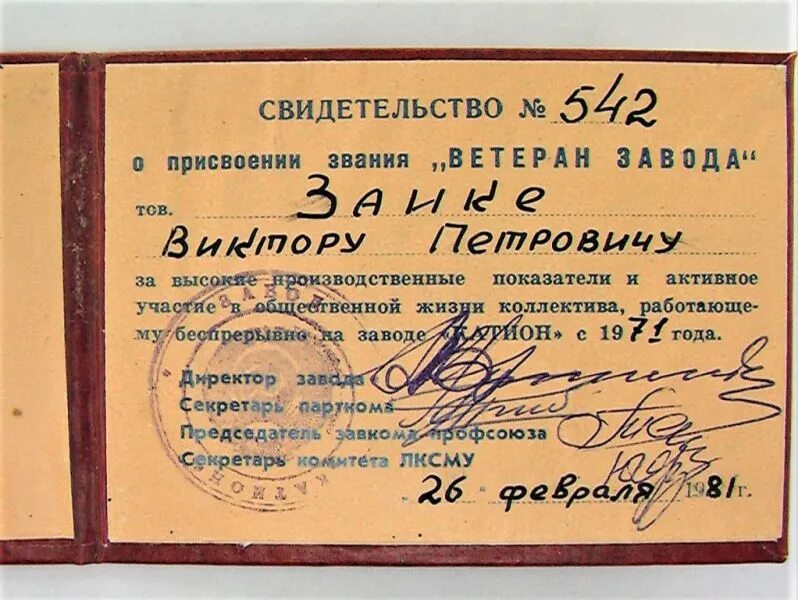 СВИДЕТЕЛЬСТВО № 542
о присвоении звания „ВЕТЕРАН ЗАВОДА“
тов. Заике
Виктору Петровичу
за высокие производственные показатели и активное
участие в общественной жизни коллектива, работающе-
му беспрерывно на заводе «КАТИОН» с 1971 года.
Директор завода
Секретарь парткома
Председатель завкома профсоюза
Секретарь комитета ЛКСМУ
26 февраля 1981 г.
ЗАВОД
КАТИОН